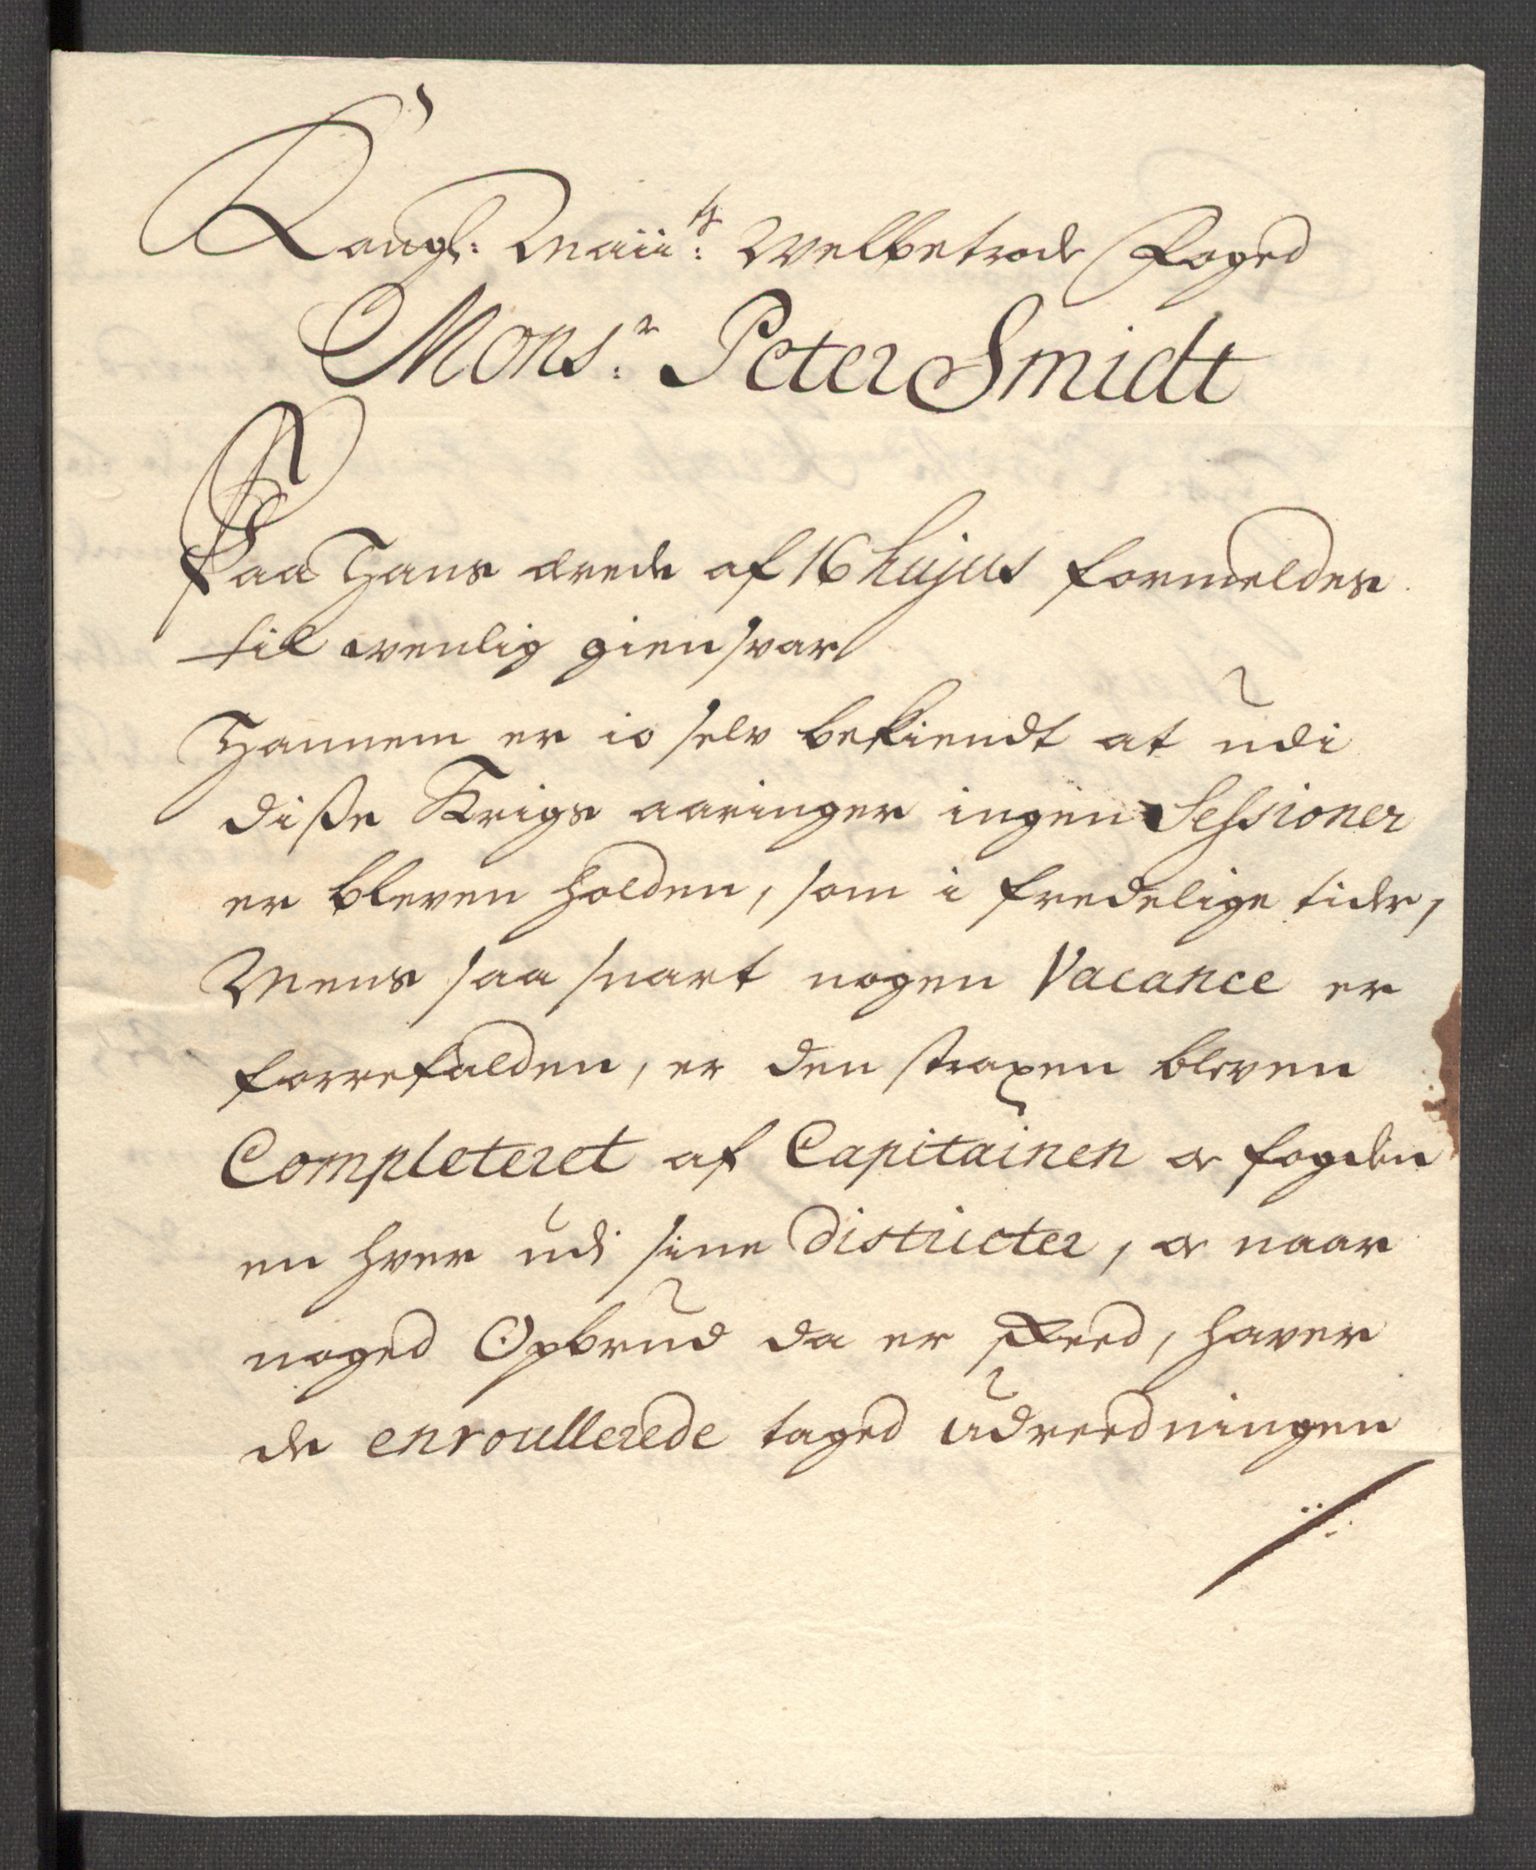 Kongl: Maii:tz Welbetrode Foged
Mons:r Peter Smidt
Paa Hans ærede af 16 hujus formeldes
til venlig giensvar
Hannem er io selv bekiendt at udi
disse Krigs aaringer ingen Sessioner
er bleven holden, som i fredelige tider,
Mens saa snart nogen Vacance er
forrefalden, er den straxen bleven
Completeret af Capitainen og fogden
en hver udi sine districter, og naar
noged Opbrud da er skeed, haver
de enroullerede taged udreedningen